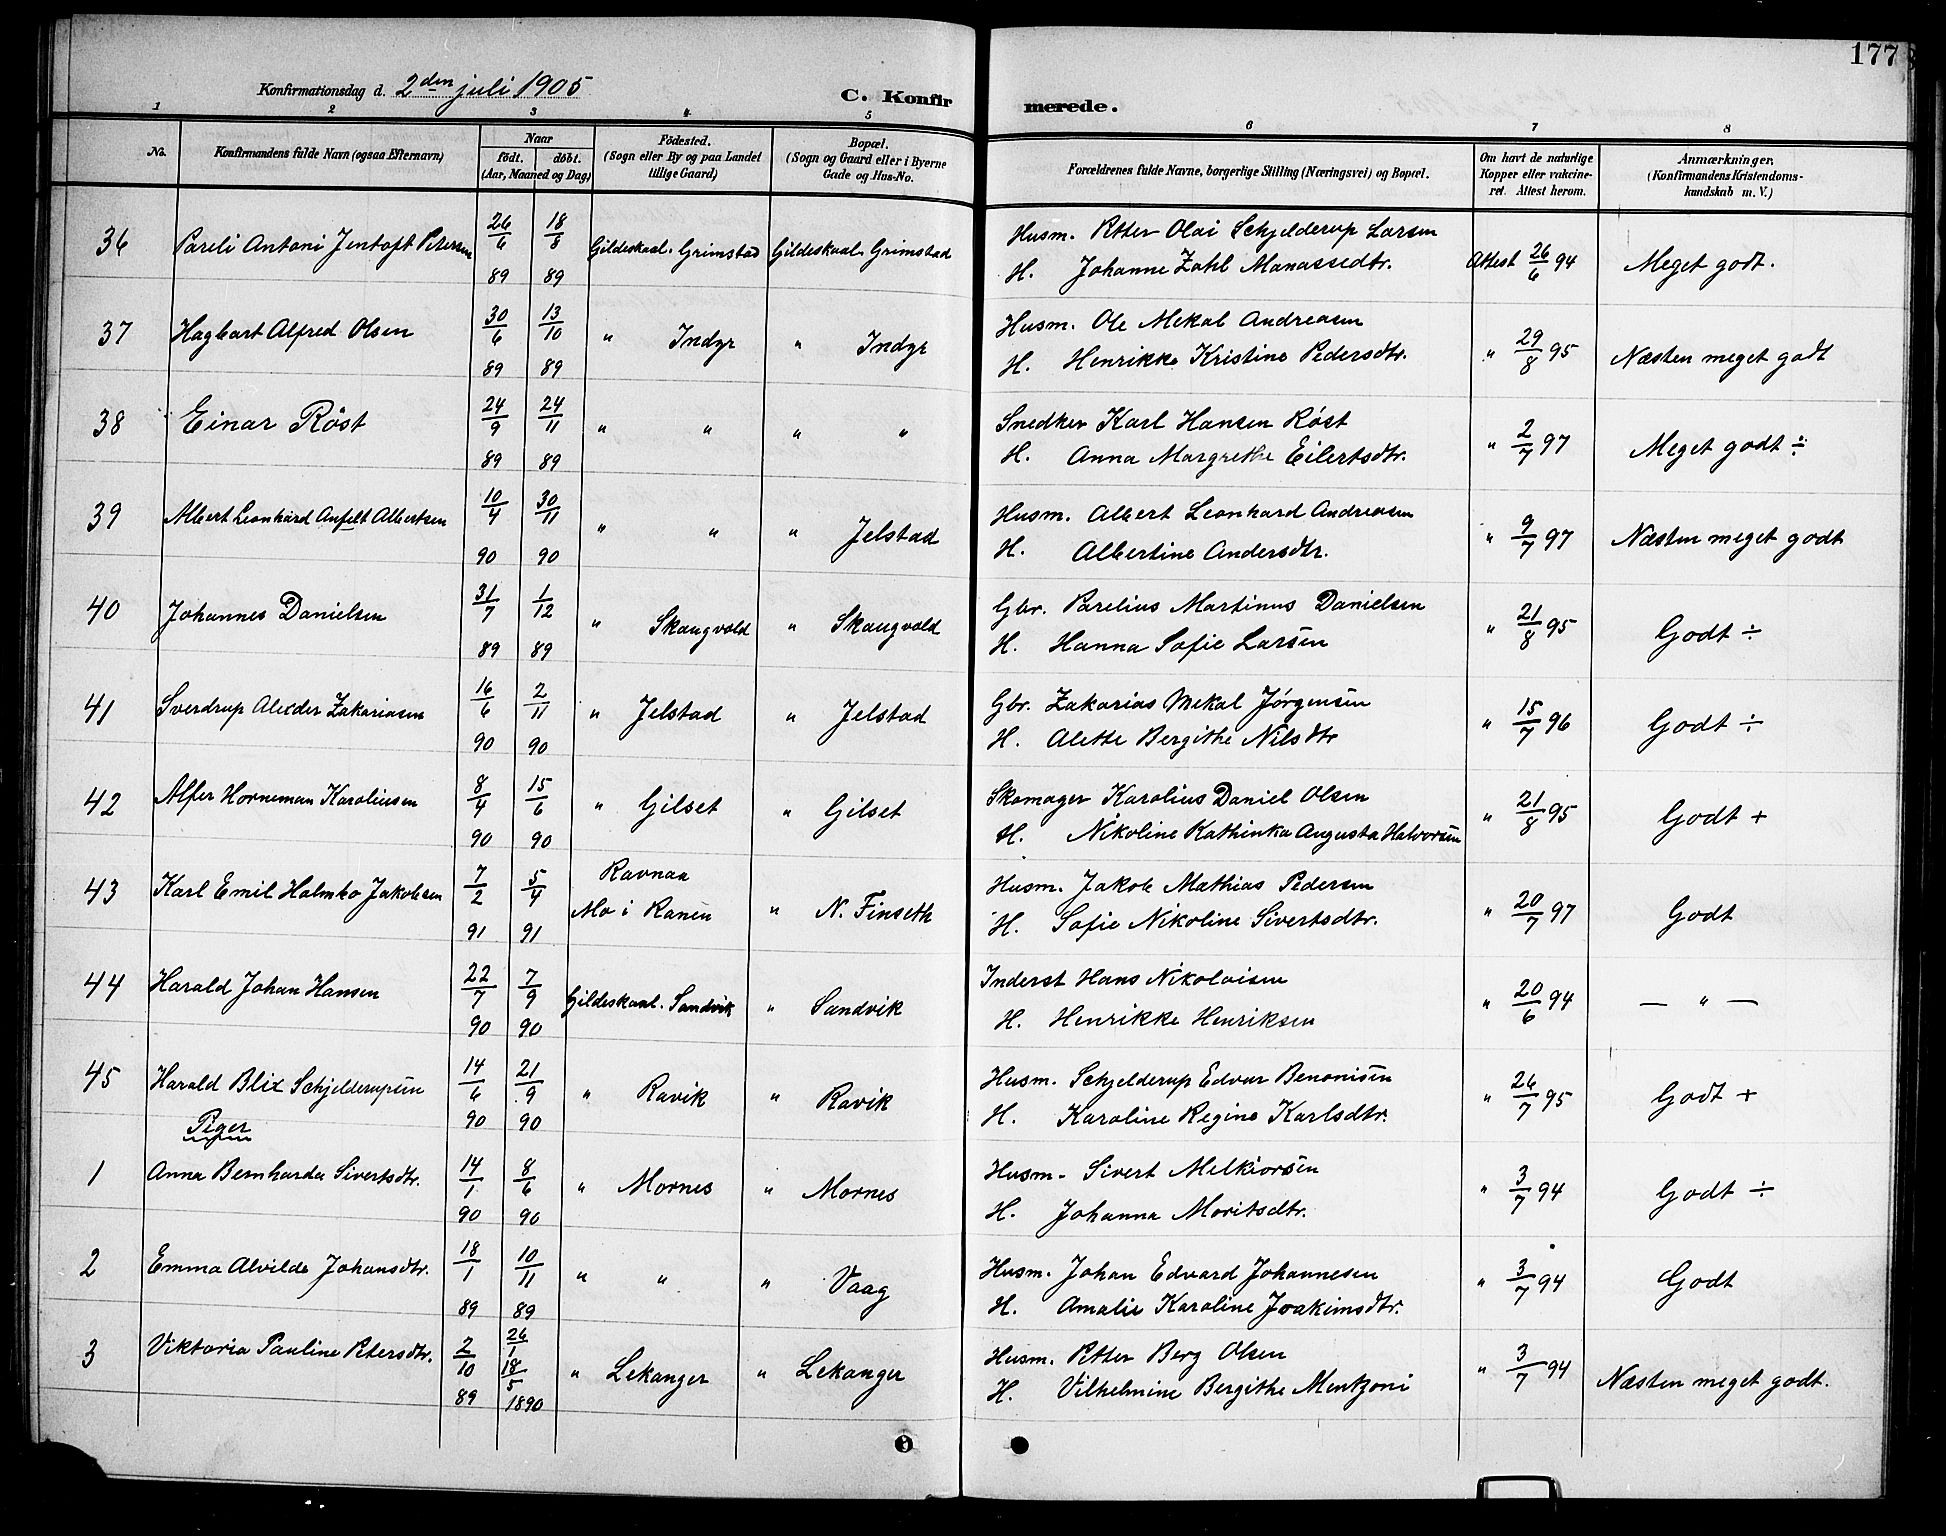 177
Konfirmationsdag d. 2den juli 1905
C. Konfirmerede.
1 2 3 4 5 6 7 8
No.
Konfirmandens fulde Navn (ogsaa Efternavn)
Naar
født. døbt.
(Aar, Maaned og Dag)
Fødested.
(Sogn eller By og paa Landet
tillige Gaard)
Bopæl.
(Sogn og Gaard eller i Byerne
Gade og Hus-No.
Forældrenes fulde Navne, borgerlige Stilling (Næringsvei) og Bopæl.
Om havt de naturlige
Kopper eller vakcine-
ret. Attest herom.
Anmærkninger.
(Konfirmandens Kristendoms-
kundskab m. V.)
36 Pareli Antoni Jentoft Petersen 26/6 89 18/8 89 Gildeskaal. Grimstad Gildeskaal. Grimstad
Husm. Petter Olai Schjelderup Larsen
H. Johanne Zahl Manassedtr. Attest 26/6 94 Meget godt.
37 Hagbart Alfred Olsen 30/6 89 13/10 89 " Indyr " Indyr
Husm. Ole Mekal Andreasen
H. Henrikke Kristine Pedersdtr. " 29/8 95 Næsten meget godt
38 Einar Röst 24/9 89 24/11 89 " " " "
Snedker Karl Hansen Røst
H. Anna Margrethe Eilertsdtr. " 2/7 97 Meget godt ÷
39 Albert Leonhard Anfelt Albertsen 10/4 90 30/11 90 " " " Jelstad
Husm. Albert Leonhard Andreasen
H. Albertine Andersdtr. " 9/7 97 Næsten meget godt
40 Johannes Danielsen 31/7 89 1/12 89 " Skaugvold " Skaugvold
Gbr. Parelius Martinus Danielsen
H. Hanna Sofie Larsen " 21/8 95 Godt ÷
41 Sverdrup Alexder Zakariasen 16/6 90 2/11 90 " Jelstad " Jelstad
Gbr. Zakarias Mekal Jørgensen
H. Alette Bergithe Nilsdtr " 15/7 96 Godt ÷
42 Alfer Horneman Karoliusen 8/4 90 15/6 90 " Gilset " Gilset
Skomager Karolius Daniel Olsen
H. Nikoline Kathinka Augusta Halvorsen " 21/8 95 Godt +
43 Karl Emil Holmbo Jakobsen 7/2 91 5/4 91 Ravnaa
Mo i Ranen " N. Finseth
Husm. Jakob Mathias Pedersen
H. Sofie Nikoline Sivertsdtr. " 20/7 97 Godt
44 Harald Johan Hansen 22/7 90 7/9 90 Gildeskaal. Sandvik " Sandvik
Inderst Hans Nikolaisen
H. Henrikke Henriksen " 20/6 94 — " —
45 Harald Blix Schjelderupsen 14/6 90 21/9 90 " Ravik " Ravik
Husm. Schjelderup Edvar Benonisen
H. Karoline Regine Karlsdtr. " 26/7 95 Godt +
Piger
1 Anna Bernharda Sivertsdtr. 14/1 90 8/6 90 " Mornes " Mornes
Husm. Sivert Melkiorsen
H. Johanna Moritsdtr. " 3/7 94 Godt ÷
2 Emma Alvilde Johansdtr. 18/1 89 10/11 89 " " " Vaag
Husm. Johan Edvard Johannesen
H. Amalie Karoline Joakimsdtr. " 3/7 94 Godt
3 Viktoria Pauline Petersdtr. 2/10 89 26/1 18/5 1890 " Lekanger " Lekanger
Husm. Petter Berg Olsen
H. Vilhelmine Bergithe Mentzoni " 3/7 94 Næsten meget godt.